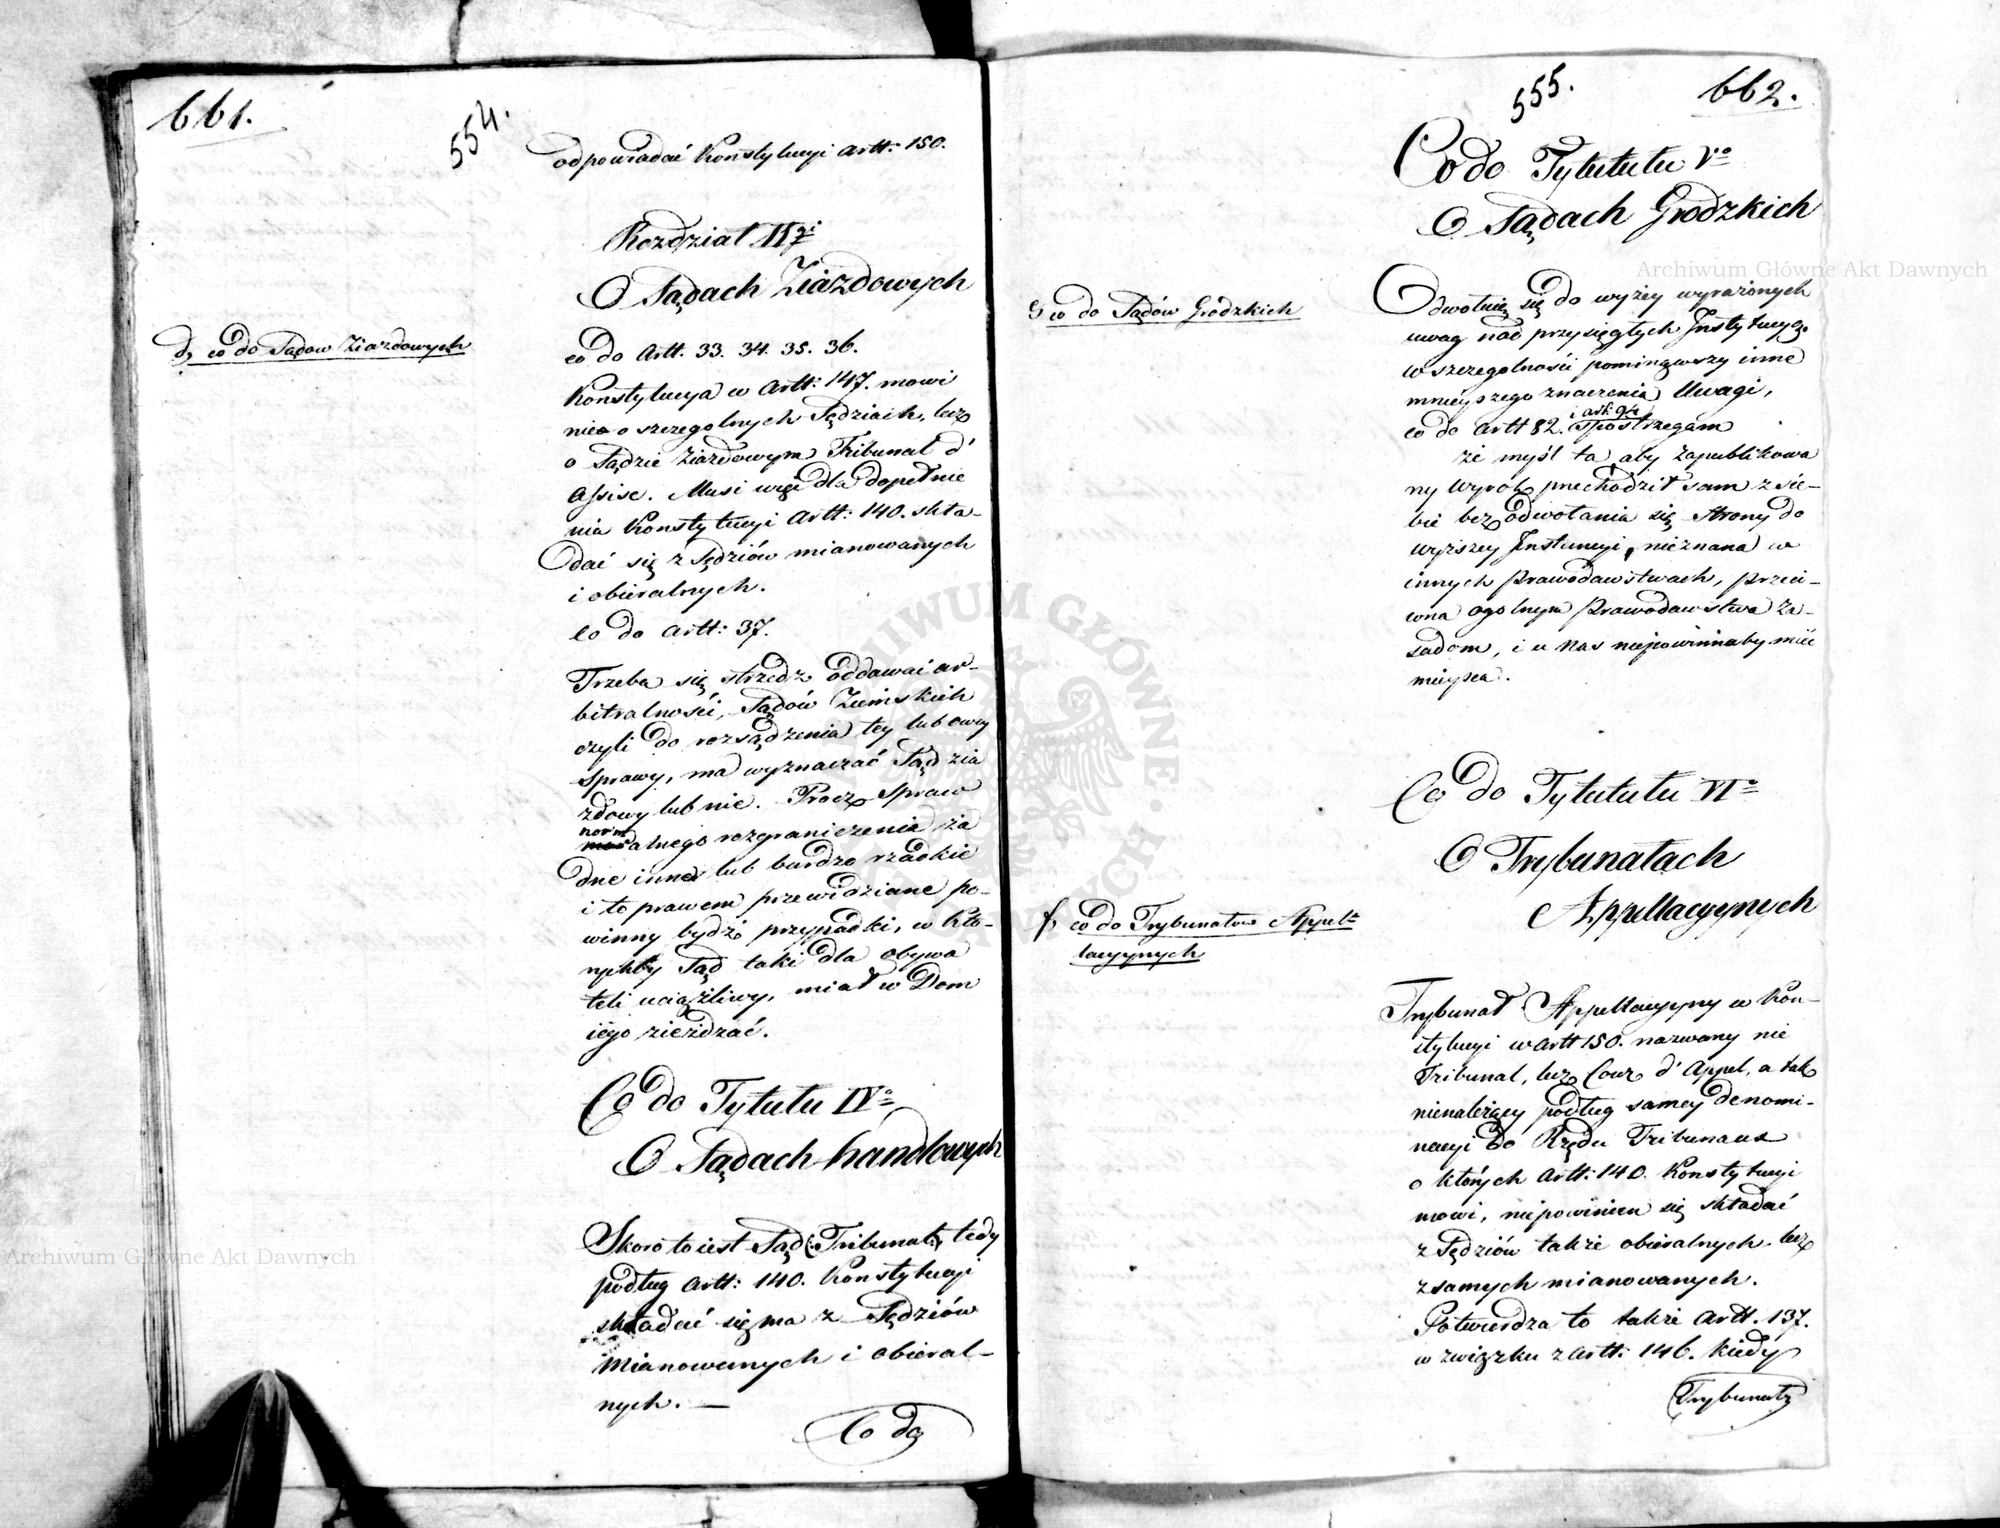 661.
554.
odpowiadać Konstytucyi Artt: 150.
Rozdział II
O Sądach Ziazdowych
d, co do Sądow Ziazdowych
co do Artt. 33. 34. 35. 36.
Konstytucya w Artt: 147. mowi
nie o szczegolnych Sędziach, lecz
o Sądzie Ziazdowym Tribunal d'
Assise. Musi więc dla dopełnie
nia Konstytucyi Artt: 140. skła-
dać się z Sędziów mianowanych
i obieralnych.
Co do Artt: 37.
Trzeba się strzedz oddawać ar-
bitralności, Sądów Ziemskich
czyli do rozsądzenia tey lub owey
sprawy, ma wyznaczać Sąd zia
zdowy lub nie. Procz Spraw
norm
alnego rozgraniczenia ża
dne inne lub bardzo rzadkie
i to prawem przewidziane po-
winny bydź przypadki, w któ-
rychby Sąd taki dla obywa
teli uciążliwy, miał w Dom
iego zieżdzać.
Co do Tytułu IVo
O Sądach handlowych
Skoro to iest Sąd (:Tribunal:) tedy
podług Artt: 140. Konstytucyi
składać się ma z Sędziów
Mianowanych i obieral-
nych. —
Co do
555.
662.
Co do Tytututu Vo
O Sądach Grodzkich
e co do Sądów Grodzkich
Odwołuię się do wyżey wyrażonych
uwag nad przysięgłych Instytucyą.
w szczegolności pominąwszy inne
mnieyszego znaczenia Uwagi,
i artt. 94
co do Artt 82. spostrzegam
że myśl ta, aby zapublikowa
ny Wyrok przechodził sam z sie-
bie bez odwołania się Strony do
wyższey Instancyi, nieznana w
innych Prawodawstwach, przeci-
wna ogolnym Prawodawstwa za-
sadom, i u nas niepowinnaby mieć
mieysca.
Co do Tytututu VIo
O Trybunałach
Appellacyynych
f, co do Trybunałow Appel-
lacyynych
Trybunał Appellacyyny w Kon-
stytucyi w Artt 150. nazwany nie
Tribunal, lecz Cour d'Appel, a tak
nienależący podług samey denomi-
nacyi do Rzędu Tribunaux
o których Artt: 140. Konstytucyi
mowi, niepowinien się składać
z Sędziów także obieralnych. lecz
z samych mianowanych.
Potwierdza to także Artt. 137.
w związku z Artt: 146. kiedy
Trybunały
Archiwum Główne Akt Dawnych
Archiwum Główne Akt Dawnych
ARCHIWUM GŁÓWNE AKT DAWNYCH